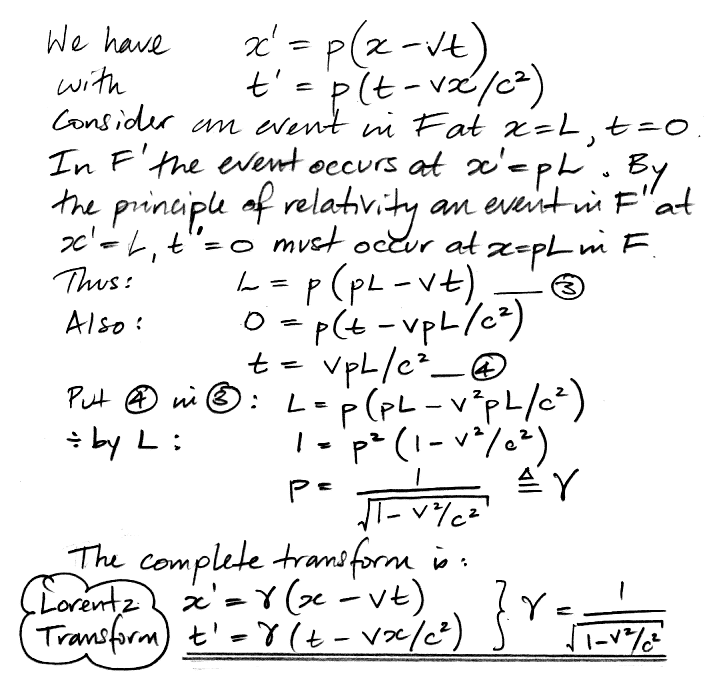 We have x' = p(x - vt)
with t' = p(t - vx/c²)
Consider an event in F at x=L, t=0.
In F' the event occurs at x'=pL. By
the principle of relativity an event in F' at
x'=L, t'=0 must occur at x=pL in F.
Thus: L = p(pL - vt) — ③
Also: 0 = p(t - vpL/c²)
t = vpL/c² — ④
Put ④ in ③: L = p(pL - v²pL/c²)
÷ by L: 1 = p²(1 - v²/c²)
p = 1/√(1 - v²/c²) ≜ γ
The complete transform is:
Lorentz Transform
x' = γ(x - vt)
t' = γ(t - vx/c²)
} γ = 1/√(1-v²/c²)